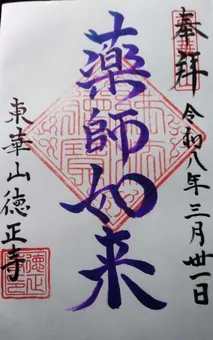 奉拝
令和八年三月卅一日
薬師如来
東華山徳正寺